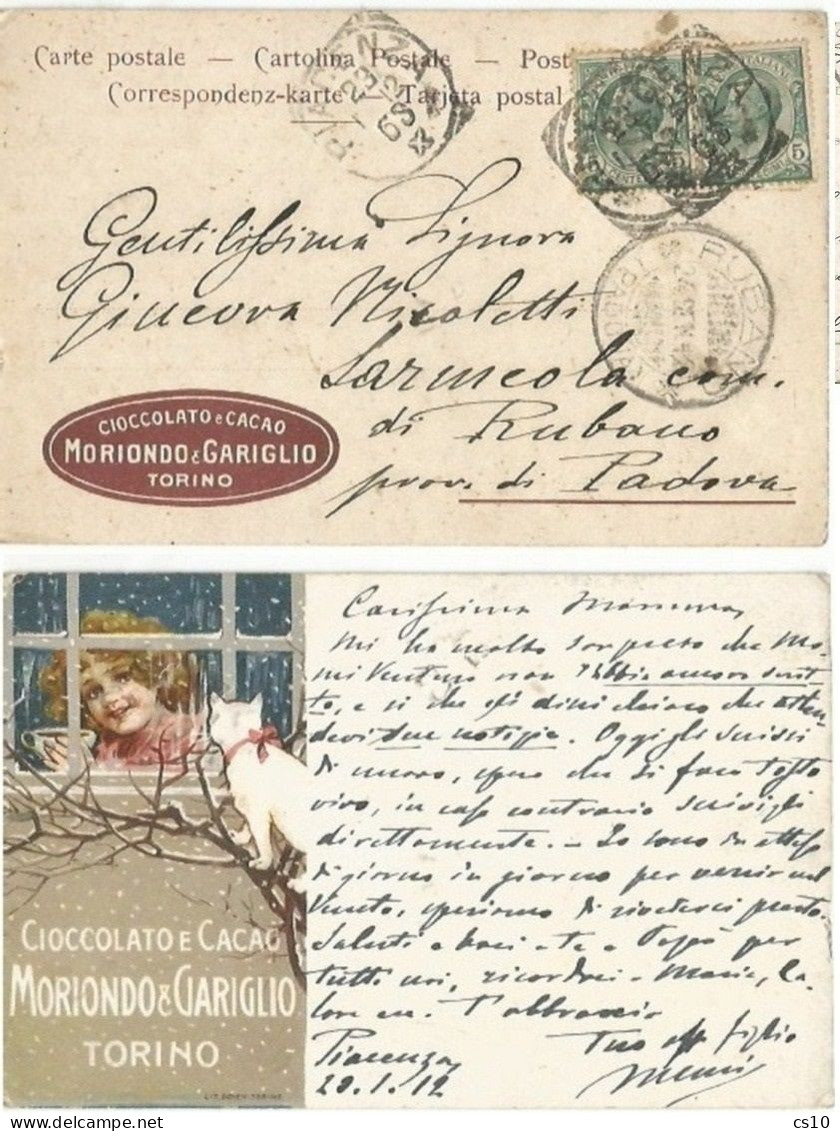 Carte postale — Cartolina Postale — Post
Correspondenz-karte — Tarjeta postal
PIACENZA
5
RUBANO
Gentilissima Signora
Ginevra Nicoletti
Sarmeola com.
di Rubano
prov. di Padova
CIOCCOLATO e CACAO
MORIONDO & GARIGLIO
TORINO
Carissima Mamma,
Mi ha molto sorpreso che Mo-
mi Venturo non abbia ancora scrit-
to, e si che gli
devi dare notizie. Oggi gli scrissi
di nuovo, spero che si farà tosto
vivo, in caso contrario scrivigli
direttamente. — Io sono in attesa
di giorno in giorno per venir nel
Veneto, speriamo di rivederci presto.
Saluti e baci a te e Papà per
tutti voi, ricordi
T'abbraccio
Tuo aff figlio
Piacenza
20.1.12
CIOCCOLATO E CACAO
MORIONDO & GARIGLIO
TORINO
LIT. DOYEN-TORINO
cs10